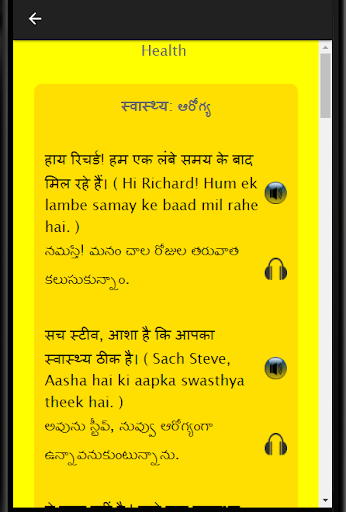 Health
स्वास्थ्य: ఆరోగ్య
हाय रिचर्ड! हम एक लंबे समय के बाद
मिल रहे हैं। ( Hi Richard! Hum ek
lambe samay ke baad mil rahe
hai. )
నమస్తే! మనం చాల రోజుల తరువాత
కలుసుకున్నాం.
सच स्टीव, आशा है कि आपका
स्वास्थ्य ठीक है। ( Sach Steve,
Aasha hai ki aapka swasthya
theek hai. )
అవును స్టీవ్, నువ్వు ఆరోగ్యంగా
ఉన్నావనుకుంటున్నాను.